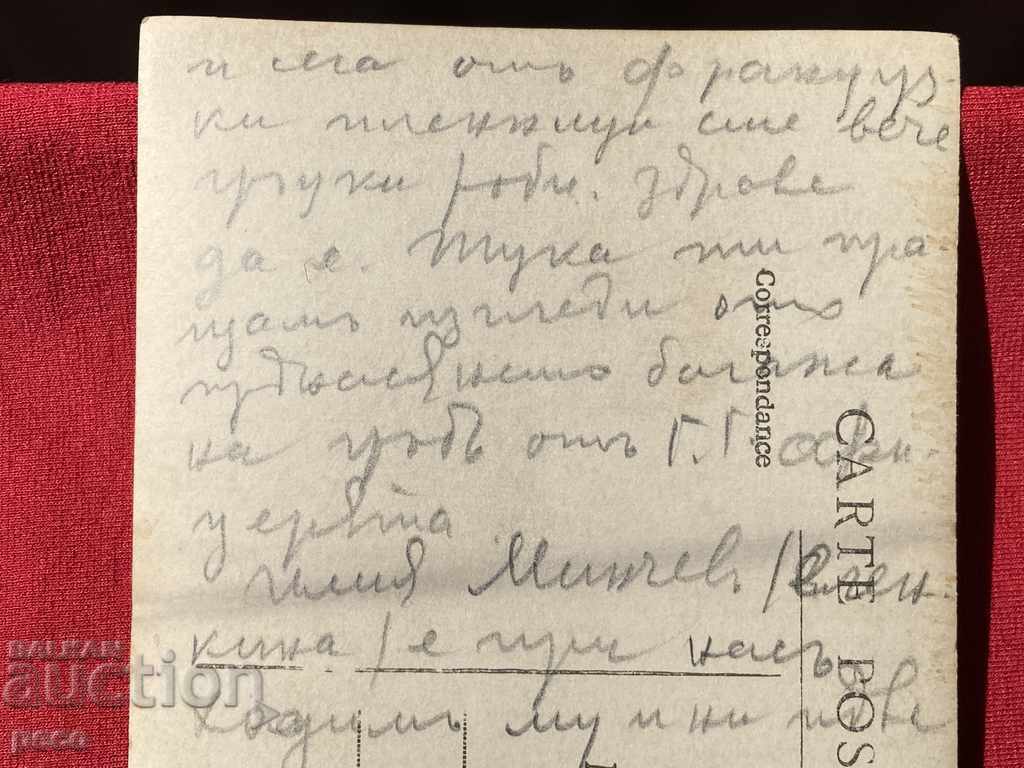 и сега отъ француз-
ки пленници сме вече
гръцки роби. Здраве
да е. Тука ти пра-
щамъ изгледи отъ
багажа
на гърбъ отъ Г. Г. офи-
церята
Илия Минчев /Елен-
кина/ е при насъ
Ходимъ му и ни
Correspondance
CARTE POS
BALKAN
auction
peco